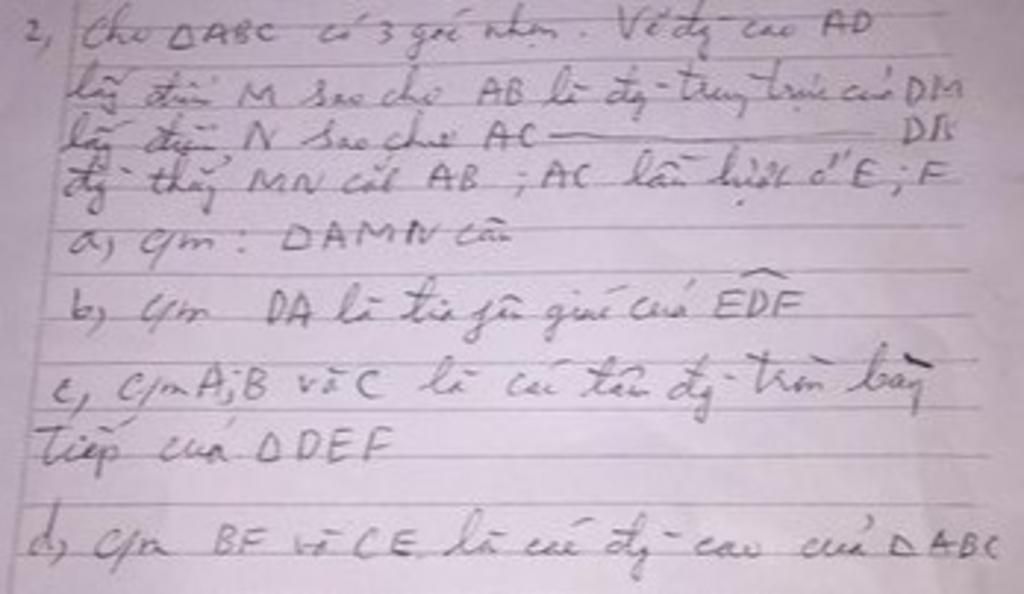 2, Cho ΔABC có 3 góc nhọn. Vẽ đg cao AD
lấy điểm M sao cho AB là đg trung trực của DM
lấy điểm N sao cho AC ——— DN
đg thẳng MN cắt AB ; AC lần lượt ở E ; F
a, c/m : ΔAMN cân
b, c/m DA là tia fân giác của EDF
c, c/m A;B và C là các tâm đg tròn bàng
tiếp của ΔDEF
d, c/m BF và CE là các đg cao của ΔABC